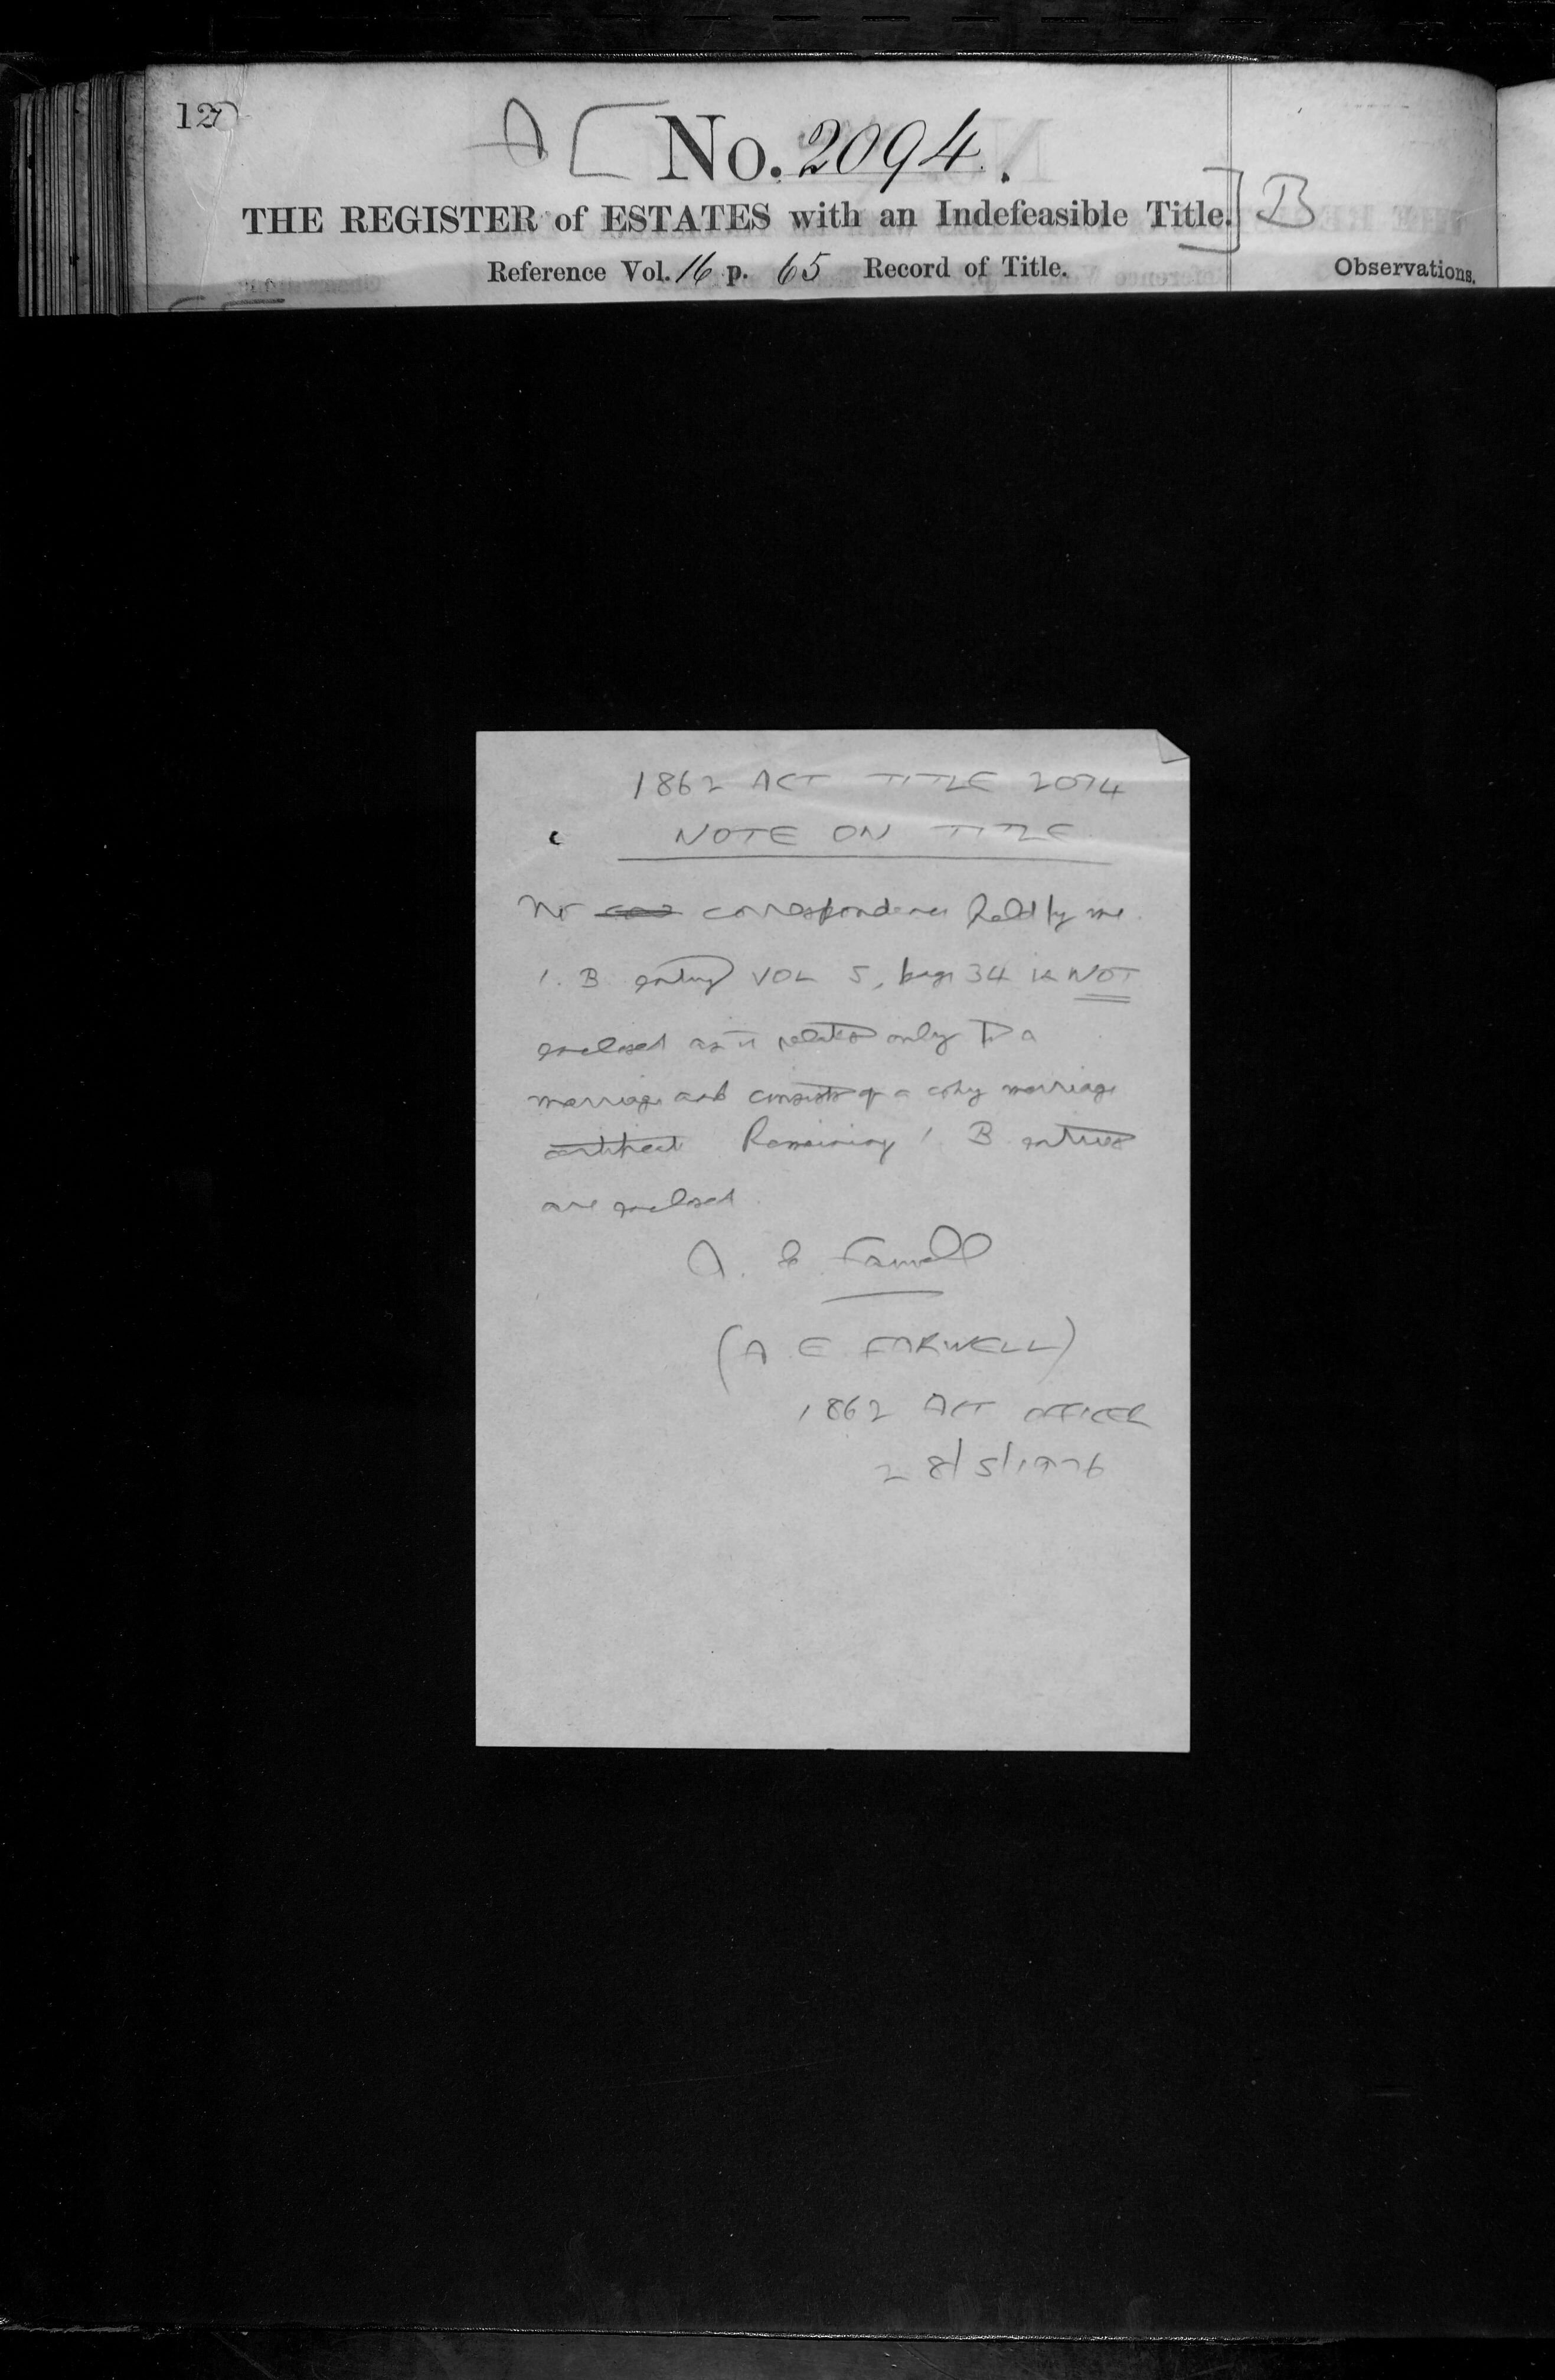 120
A [ No. 2094.
THE REGISTER of ESTATES with an Indefeasible Title. ] B
Reference Vol. 16 p. 65 Record of Title.
Observations.
1862 ACT TITLE 2094
NOTE ON TITLE
No correspondence held by me.
1. B entry VOL 5, page 34 is NOT
enclosed as it relates only to a
marriage and consists of a copy marriage
certificate Remaining 1 B entries
are enclosed.
A. E Farwell
(A E FARWELL)
1862 ACT OFFICER
28/5/1976